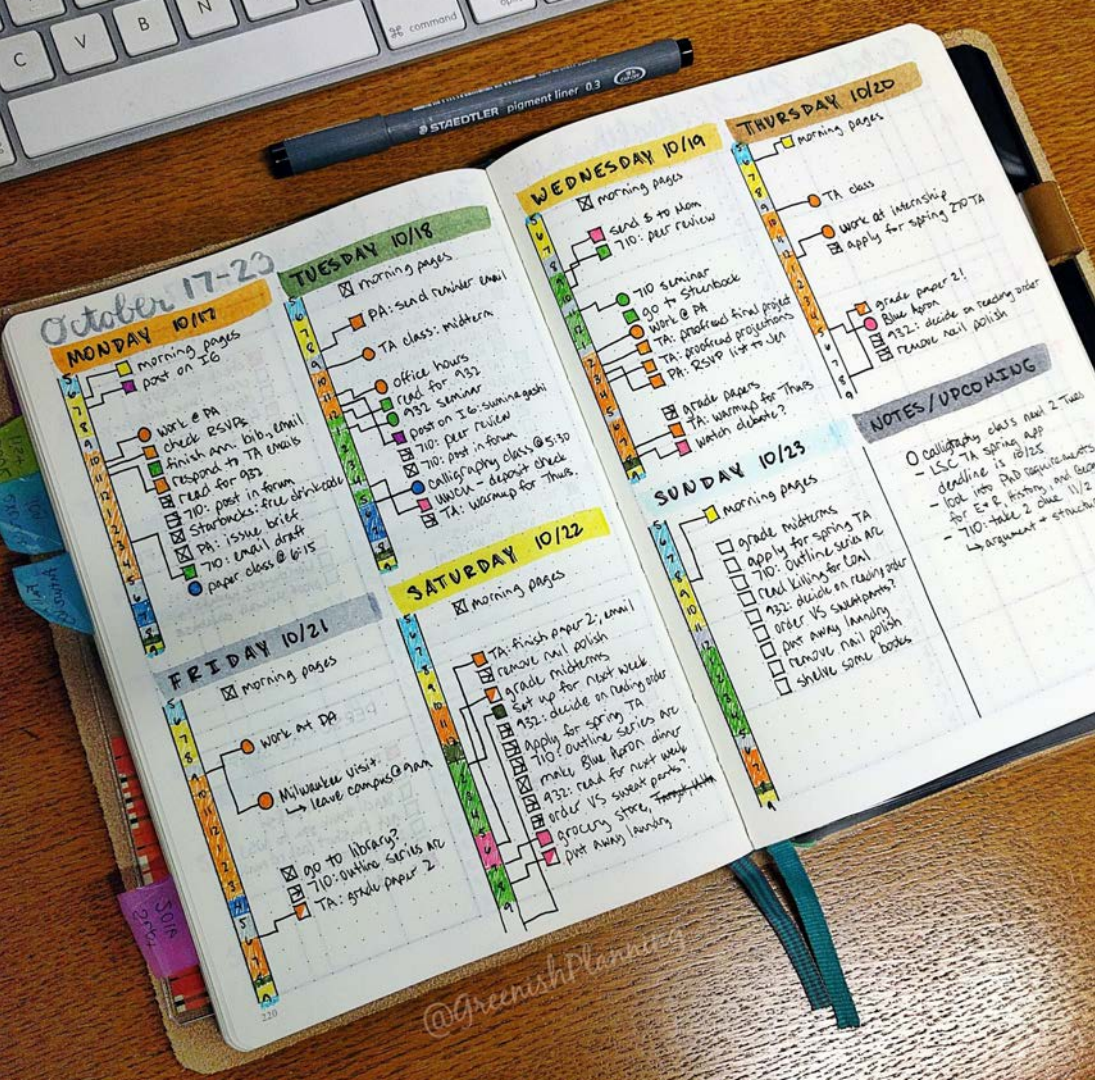 C
V
B
N
⌘ command
STAEDTLER pigment liner 0.3
October 17-23
MONDAY 10/17
morning pages
post on IG
work @ PA
check RSVPs
finish ann. bib, email
respond to TA emails
read for 932
710: post in forum
Starbucks: free drink code
PA: issue brief
710: email draft
paper class @ 6:15
TUESDAY 10/18
morning pages
PA: send reminder email
TA class: midterm
office hours
read for 932
932 seminar
post on IG: suminagashi
710: peer review
710: post in forum
calligraphy class @ 5:30
UWCU - deposit check
TA: warmup for Thurs.
FRIDAY 10/21
morning pages
work at PA
Milwaukee visit:
↳ leave campus @ 9am
go to library?
710: outline series arc
TA: grade paper 2
SATURDAY 10/22
morning pages
TA: finish paper 2; email
remove nail polish
grade midterms
Set up for next week
932: decide on reading order
apply for spring TA
710: outline series arc
make Blue Apron dinner
932: read for next week
order VS sweatpants?
grocery store,
put away laundry
220
WEDNESDAY 10/19
morning pages
send $ to Mom
710: peer review
710 seminar
go to Steenbock
work @ PA
TA: proofread final project
TA: proofread projections
PA: RSVP list to Jen
grade papers
TA: warmup for Thurs
watch debate?
THURSDAY 10/20
morning pages
TA class
work at internship
apply for spring 270 TA
grade paper 2!
Blue Apron
932: decide on reading order
remove nail polish
SUNDAY 10/23
morning pages
grade midterms
apply for spring TA
710: outline series arc
read Killing for Coal
932: decide on reading order
order VS sweatpants?
put away laundry
remove nail polish
shelve some books
NOTES/UPCOMING
calligraphy class next 2 Tues
- LSC TA spring app
deadline is 10/25
- look into PhD requirements
for E+R, History, and
- 710: take 2 due 11/2
↳ argument + structure
@GreenishPlanning